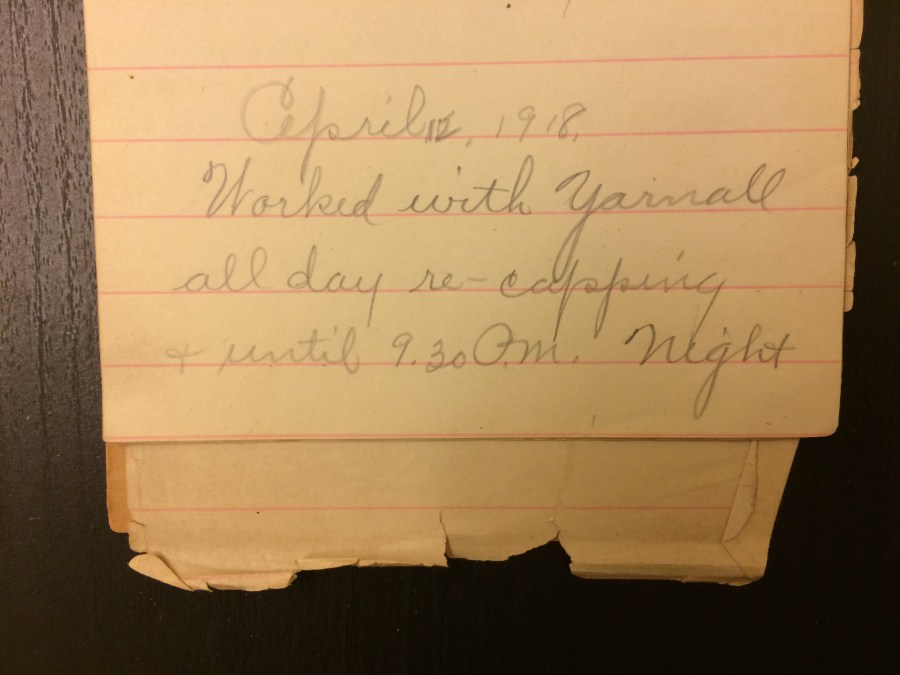 April 12, 1918.
Worked with Yarnall
all day re-capping
& until 9.30 P.m. Night